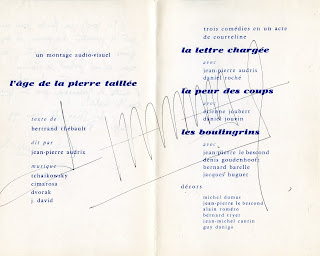 un montage audio-visuel
l'âge de la pierre taillée
texte de
bertrand thébault
dit par
jean-pierre audrix
musique
tchaïkowsky
cimarosa
dvorak
j. david
trois comédies en un acte
de courteline
la lettre chargée
avec
jean-pierre audrix
daniel roché
la peur des coups
avec
étienne joubert
daniel jouvin
les boulingrins
avec
jean-pierre le bescond
denis goudenhooft
bernard barelle
jacques huguet
décors
michel dumas
jean-pierre le bescond
alain roméro
bernard fryer
jean-michel cantin
guy danigo